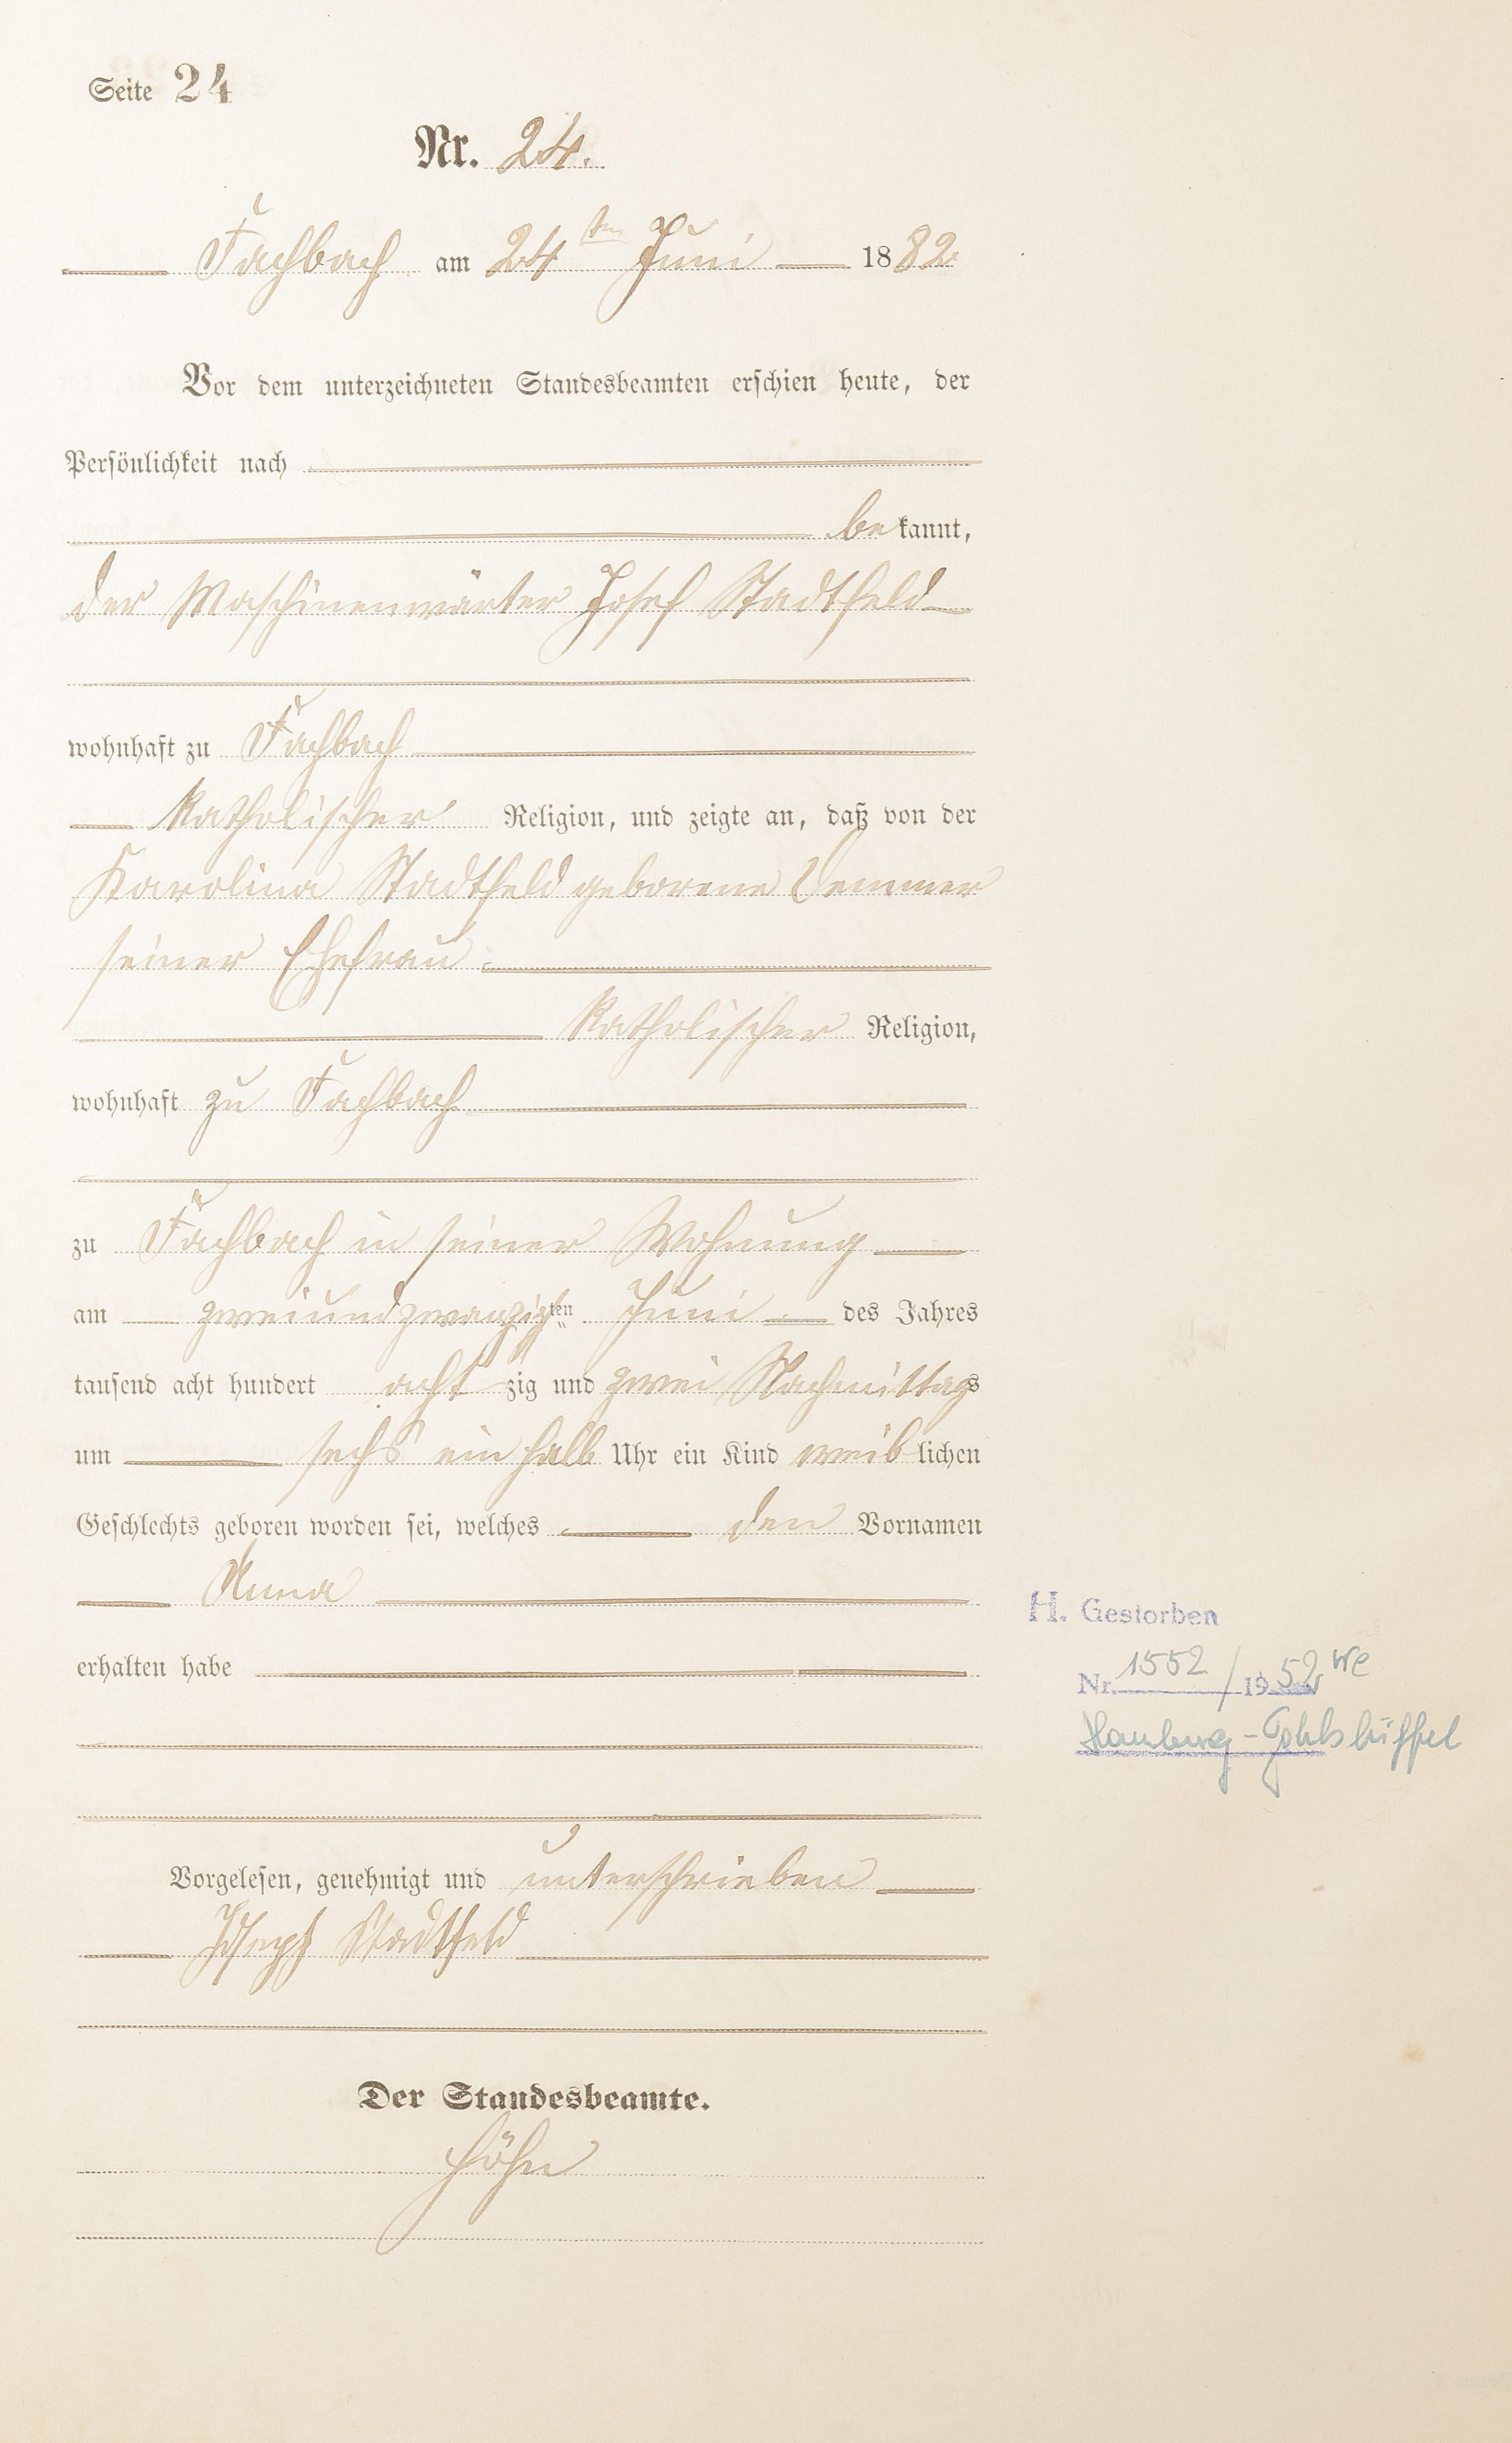 Seite 24
Nr. 24.
Fachbach am 24ten Juni 1882.
Vor dem unterzeichneten Standesbeamten erschien heute, der
Persönlichkeit nach
bekannt,
der Maschinenwärter Josef Stadtfeld
wohnhaft zu Fachbach
katholischer Religion, und zeigte an, daß von der
Karolina Stadtfeld geborene Demmer
seiner Ehefrau
katholischer Religion,
wohnhaft zu Fachbach
zu Fachbach in seiner Wohnung
am zweiundzwanzigten Juni des Jahres
tausend acht hundert achtzig und zwei Nachmittags
um sechs ein halb Uhr ein Kind weiblichen
Geschlechts geboren worden sei, welches den Vornamen
Anna
erhalten habe
H. Gestorben
Nr. 1552/1952 We
Hamburg-Fuhlsbüttel
Vorgelesen, genehmigt und unterschrieben
Joseph Stadtfeld
Der Standesbeamte.
Höhn